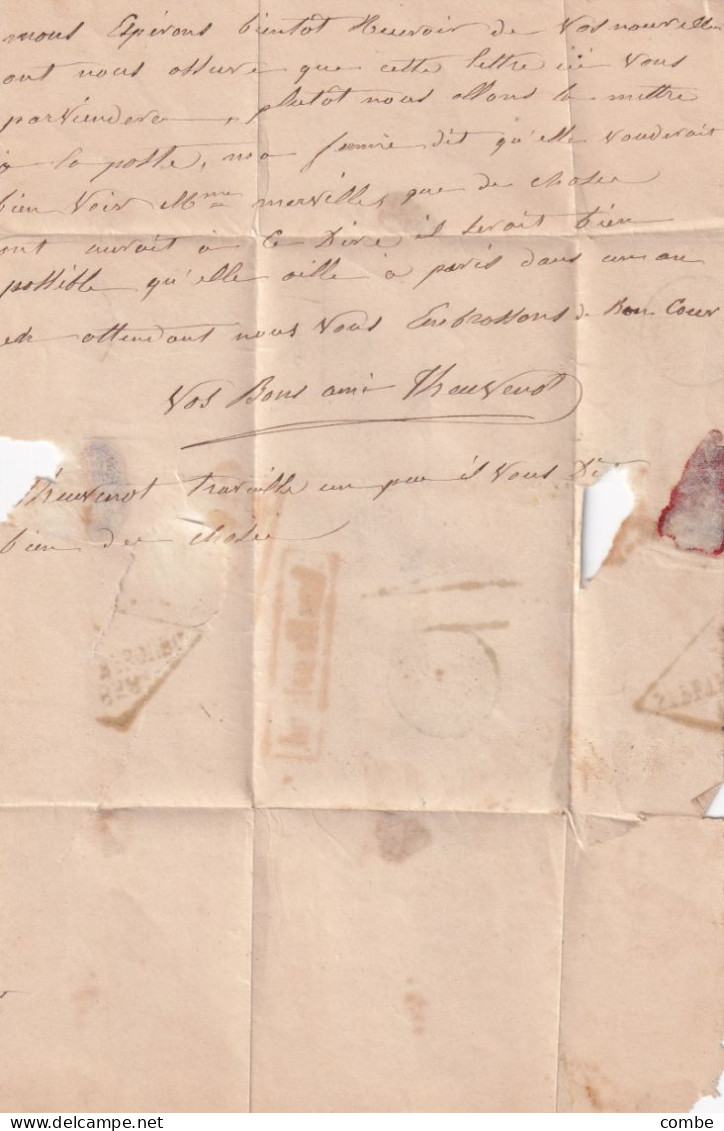 nous Espérons bientot Recevoir de Vos nouvelles
ont nous assure que cette lettre ici Vous
parviendera, plutôt nous allons la mettre
à la poste, ma femme dit qu'elle vouderait
bien Voir Mme merville, que de chose
ont aurait à Ce Dire il serait bien
possible qu'elle aille à paris dans un an
en attendant nous Vous Enbrassons de Bon Cour
Vos Bons ami Theuvenot
Theuvenot travaille un peu il Vous Di
bien des chose
combe